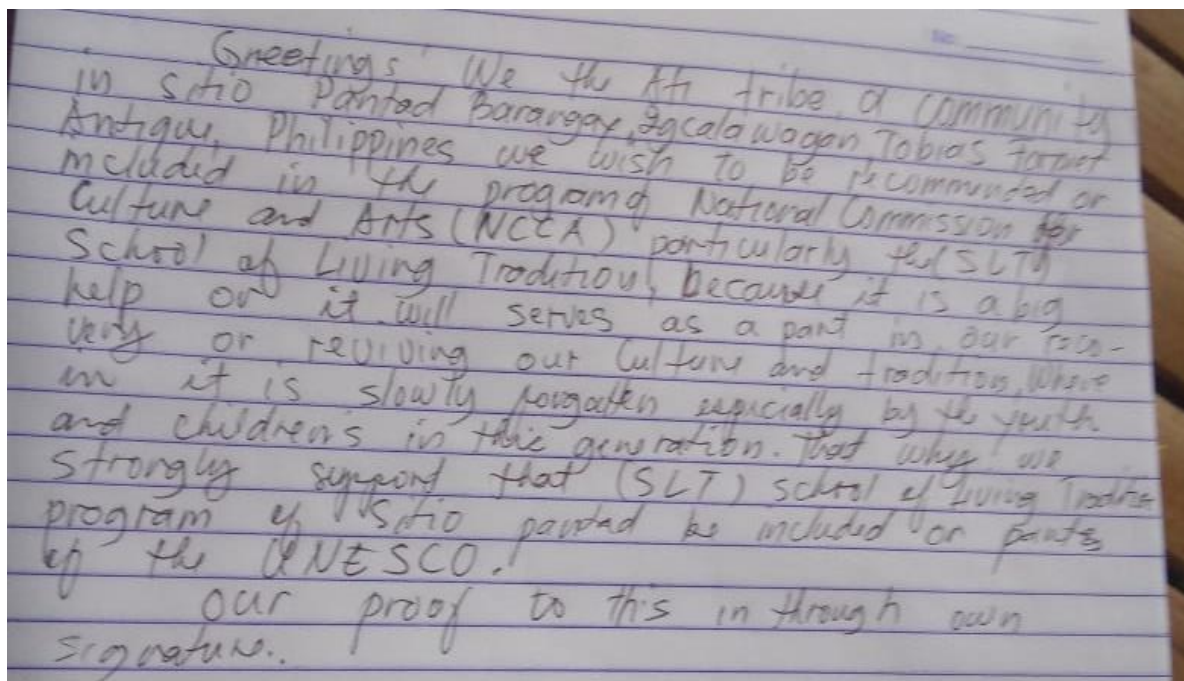 Greetings! We the Ati tribe, a community
in Sitio Pantad Barangay, Igcalawagan Tobias Fornier
Antique, Philippines we wish to be recommended or
included in the program of National Commission for
Culture and Arts (NCCA) particularly the (SLT)
School of Living Tradition, because it is a big
help or it will serves as a part in our reco-
very or reviving our Culture and tradition, Where
in it is slowly forgotten especially by the youth
and children's in this generation. That why we
strongly support that (SLT) school of Living Tradition
program of Sitio pantad be included or parts
of the UNESCO.
Our proof to this in through own
signature..